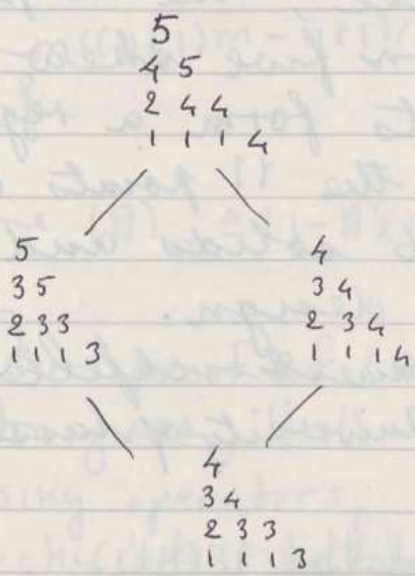 5
4 5
2 4 4
1 1 1 4
5
3 5
2 3 3
1 1 1 3
4
3 4
2 3 4
1 1 1 4
4
3 4
2 3 3
1 1 1 3